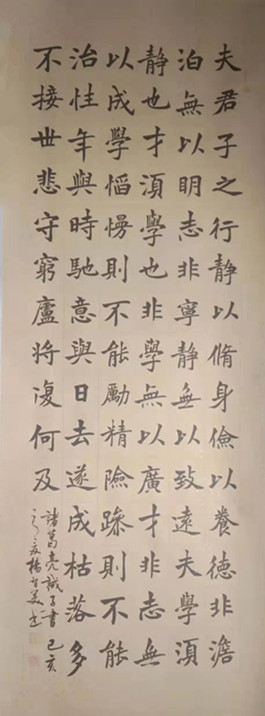 夫君子之行靜以脩身儉以養德非澹
泊無以明志非寧靜無以致遠夫學須
靜也才須學也非學無以廣才非志無
以成學慆慢則不能勵精險躁則不能
治性年與時馳意與日去遂成枯落多
不接世悲守窮廬將復何及
諸葛亮誡子書 己亥
之夏楊